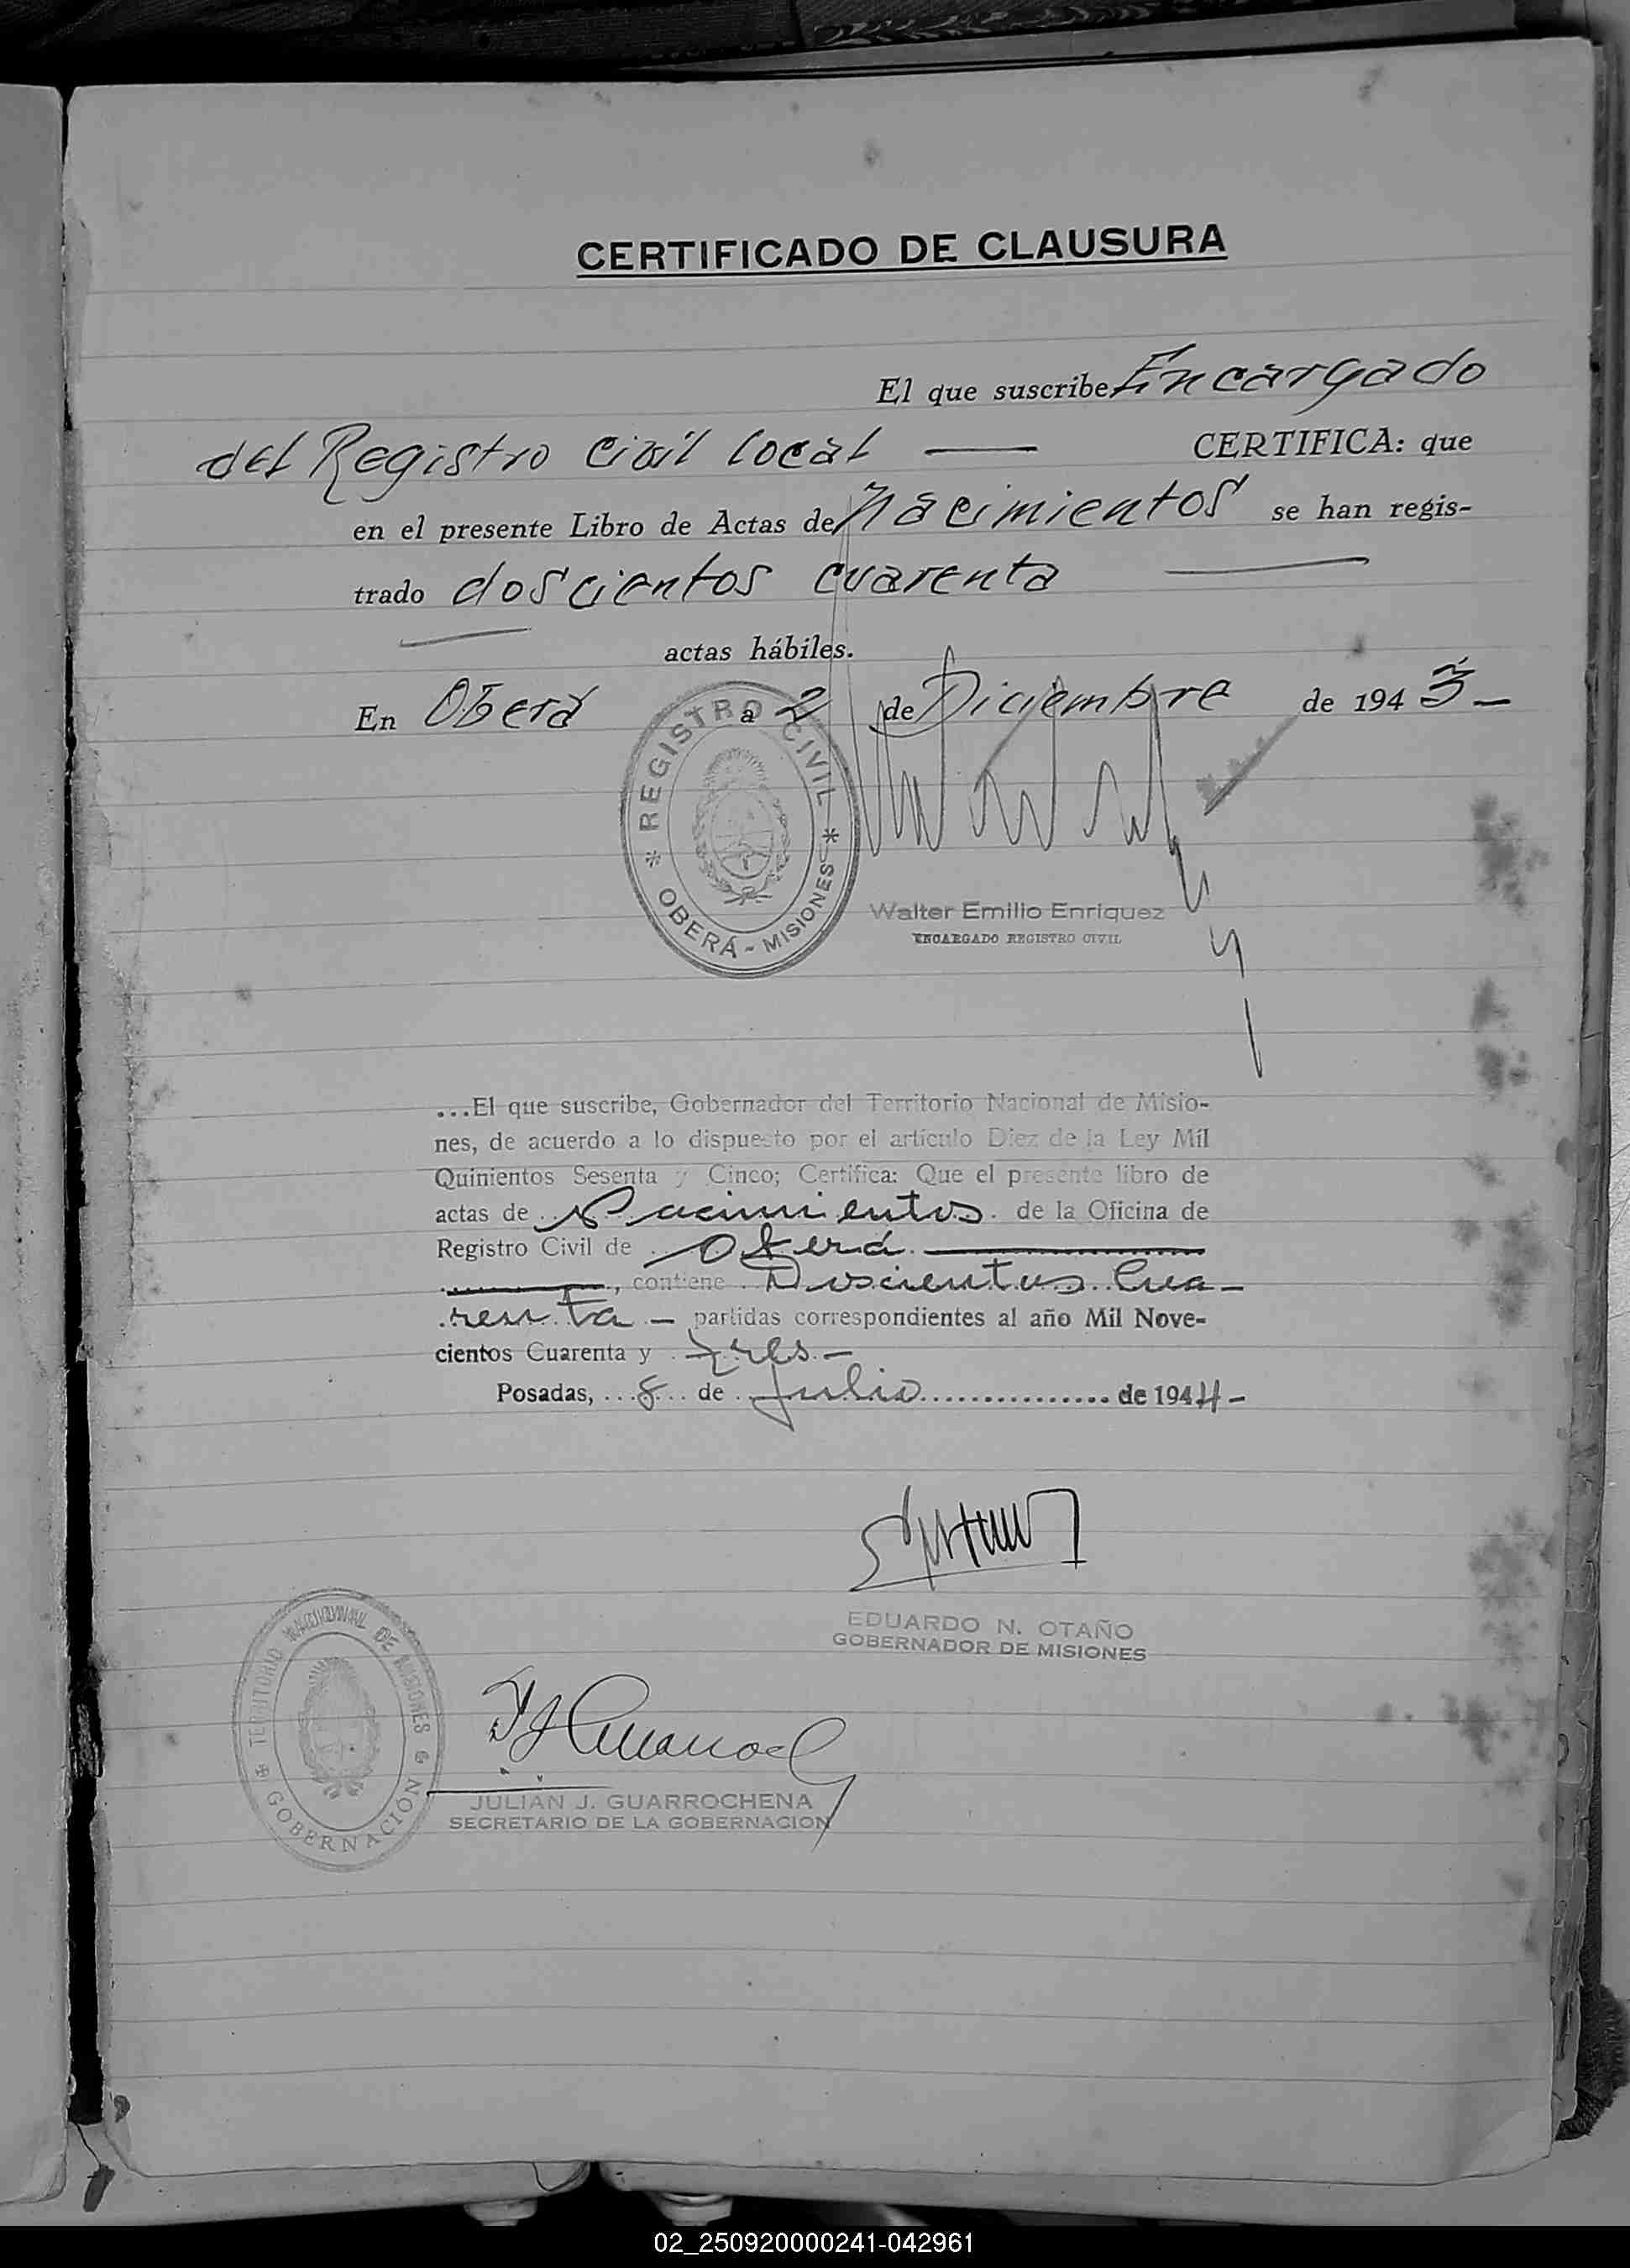 CERTIFICADO DE CLAUSURA
El que suscribe, Encargado
del Registro Civil local — CERTIFICA: que
en el presente Libro de Actas de Nacimientos se han regis-
trado doscientos cuarenta —
— actas hábiles.
En Oberá a 2 de Diciembre de 1943 –
REGISTRO CIVIL
* OBERÁ - MISIONES *
Walter Emilio Enriquez
ENCARGADO REGISTRO CIVIL
...El que suscribe, Gobernador del Territorio Nacional de Misio-
nes, de acuerdo a lo dispuesto por el artículo Diez de la Ley Mil
Quinientos Sesenta y Cinco; Certifica: Que el presente libro de
actas de Nacimientos. de la Oficina de
Registro Civil de Oberá. —
—, contiene Doscientos Cua-
renta – partidas correspondientes al año Mil Nove-
cientos Cuarenta y tres. –
Posadas, ...8... de Julio ............... de 1944 -
EDUARDO N. OTAÑO
GOBERNADOR DE MISIONES
TERRITORIO NACIONAL DE MISIONES
GOBERNACIÓN
JULIAN J. GUARROCHENA
SECRETARIO DE LA GOBERNACION
02_250920000241-042961